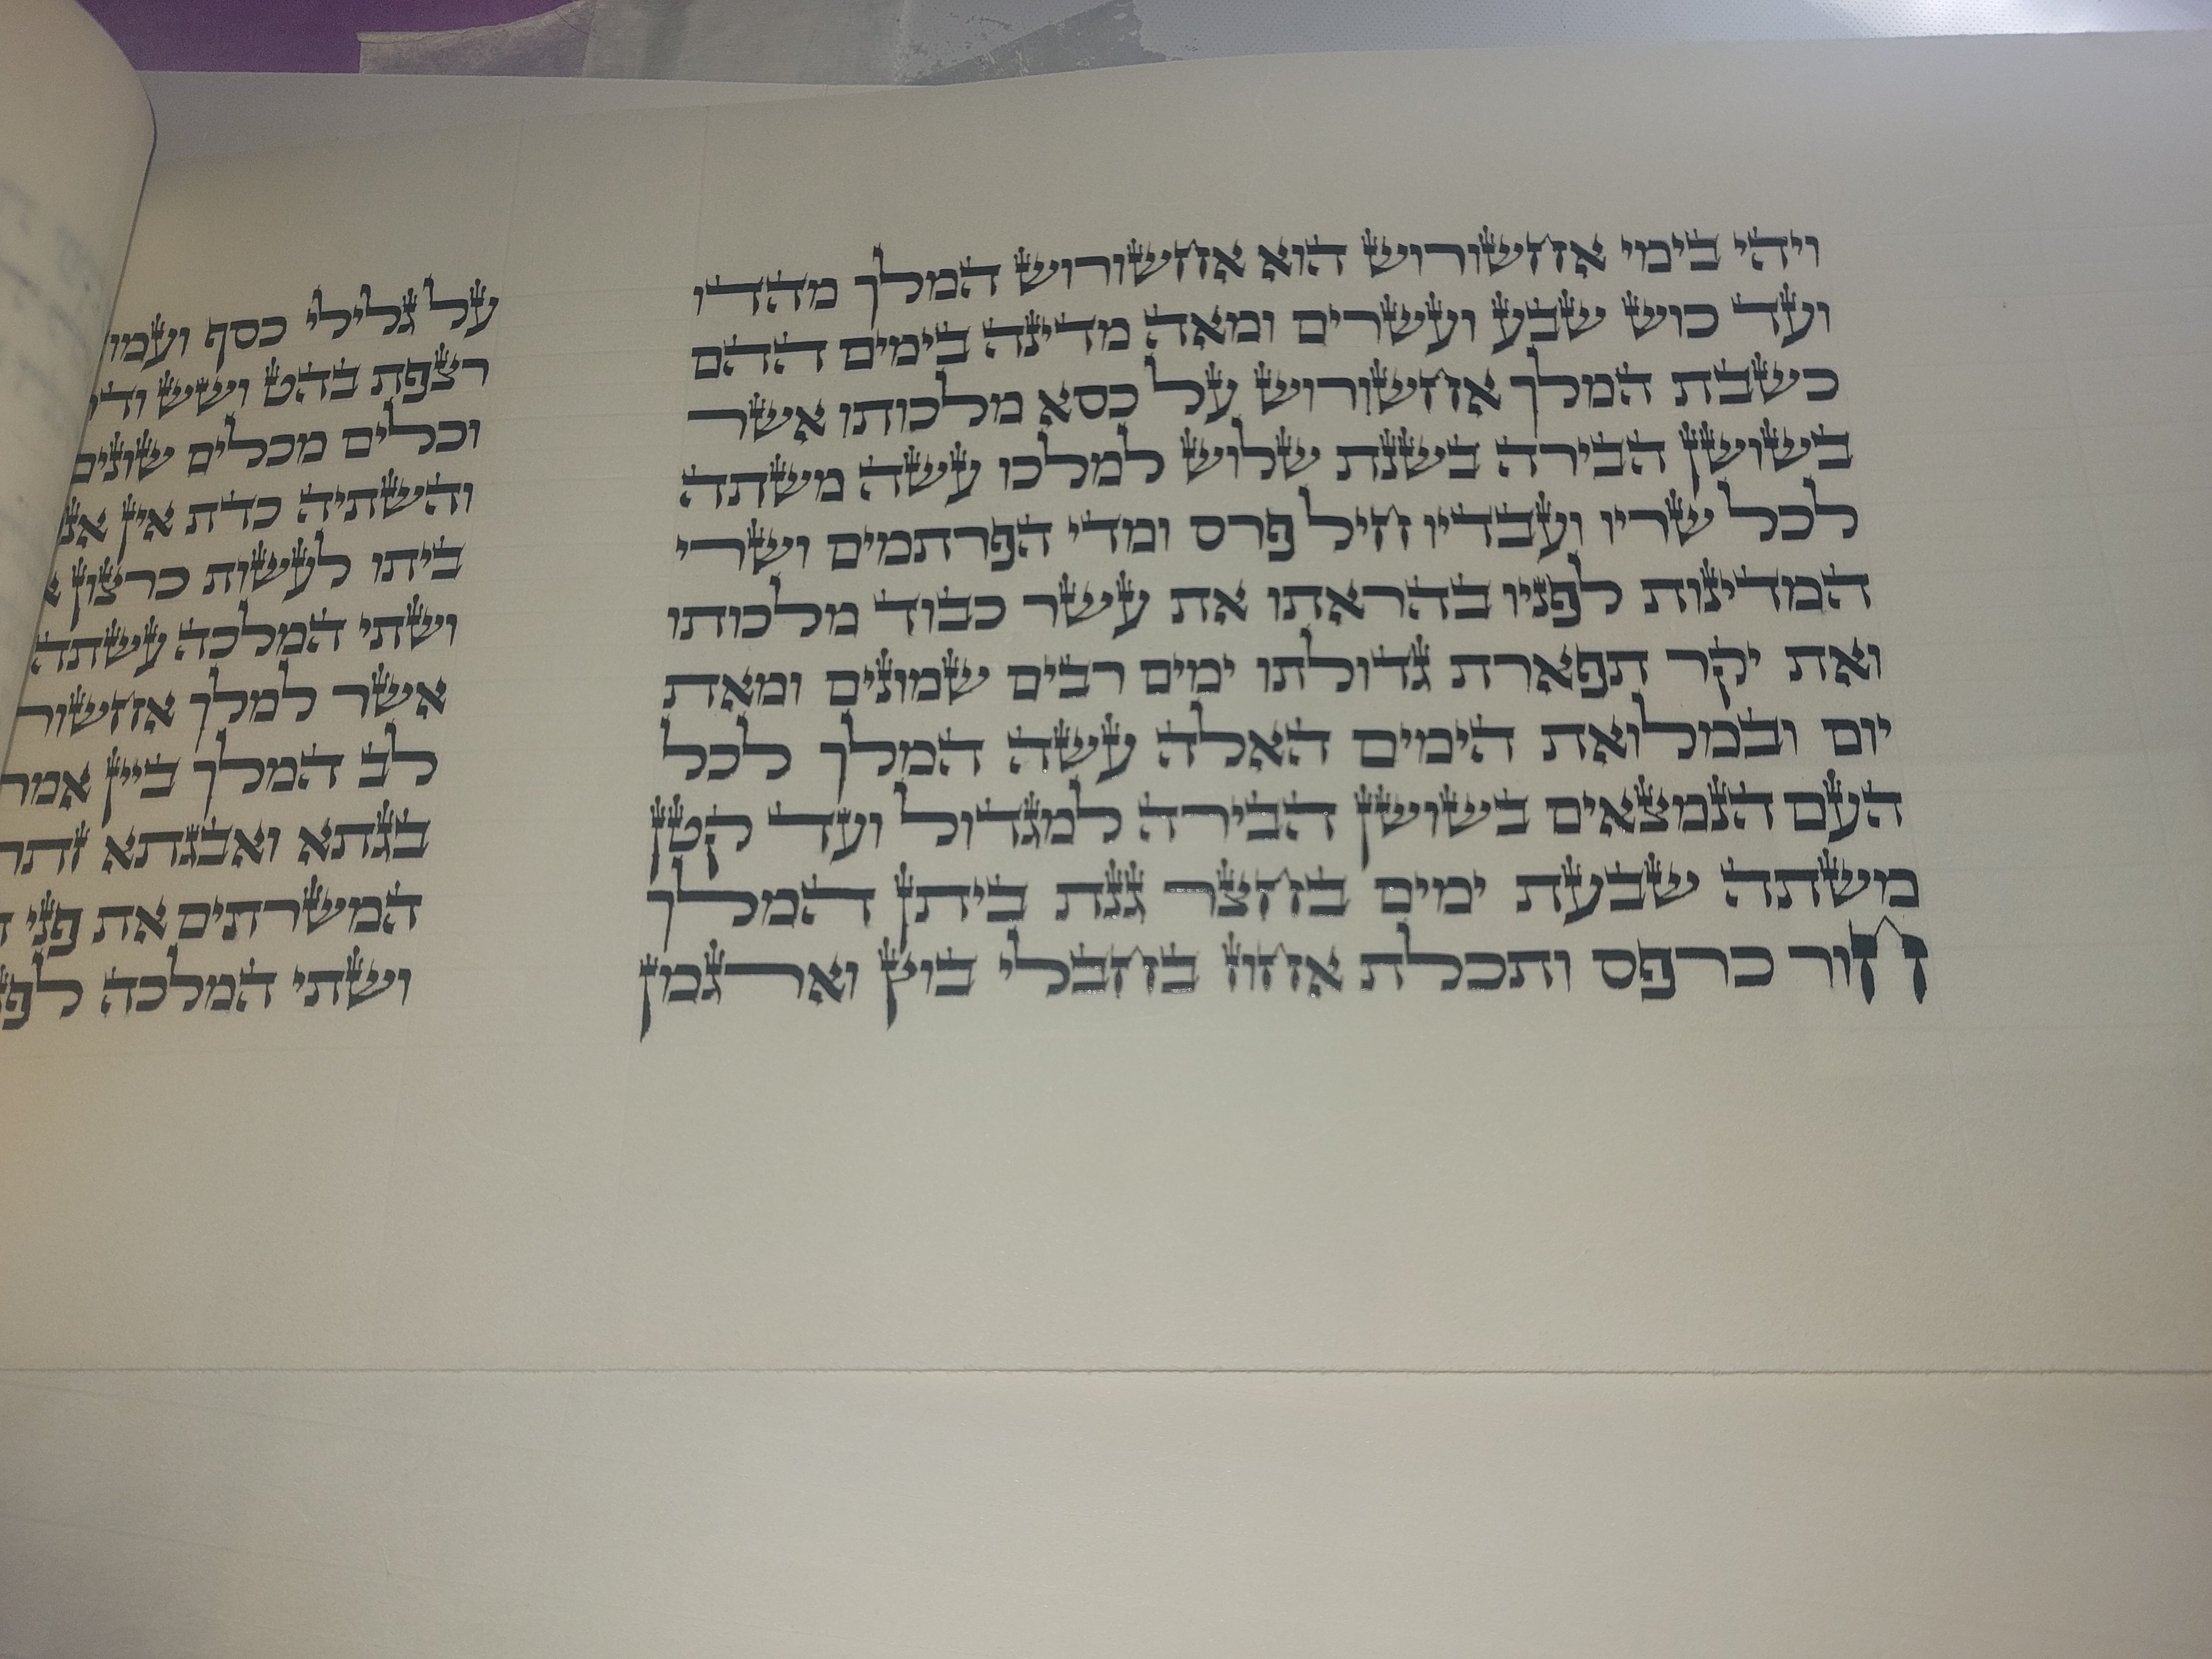 ויהי בימי אחשורוש הוא אחשורוש המלך מהדו
ועד כוש שבע ועשרים ומאה מדינה בימים ההם
כשבת המלך אחשורוש על כסא מלכותו אשר
בשושן הבירה בשנת שלוש למלכו עשה משתה
לכל שריו ועבדיו חיל פרס ומדי הפרתמים ושרי
המדינות לפניו בהראתו את עשר כבוד מלכותו
ואת יקר תפארת גדולתו ימים רבים שמונים ומאת
יום ובמלואת הימים האלה עשה המלך לכל
העם הנמצאים בשושן הבירה למגדול ועד קטן
משתה שבעת ימים בחצר גנת ביתן המלך
חור כרפס ותכלת אחוז בחבלי בוץ וארגמן
על גלילי כסף ועמו
רצפת בהט ושש ודר
וכלים מכלים שונים
והשתיה כדת אין אנ
ביתו לעשות כרצון א
ושתי המלכה עשתה
אשר למלך אחשור
לב המלך ביין אמר
בגתא ואבגתא זתר
המשרתים את פני
ושתי המלכה לפנ